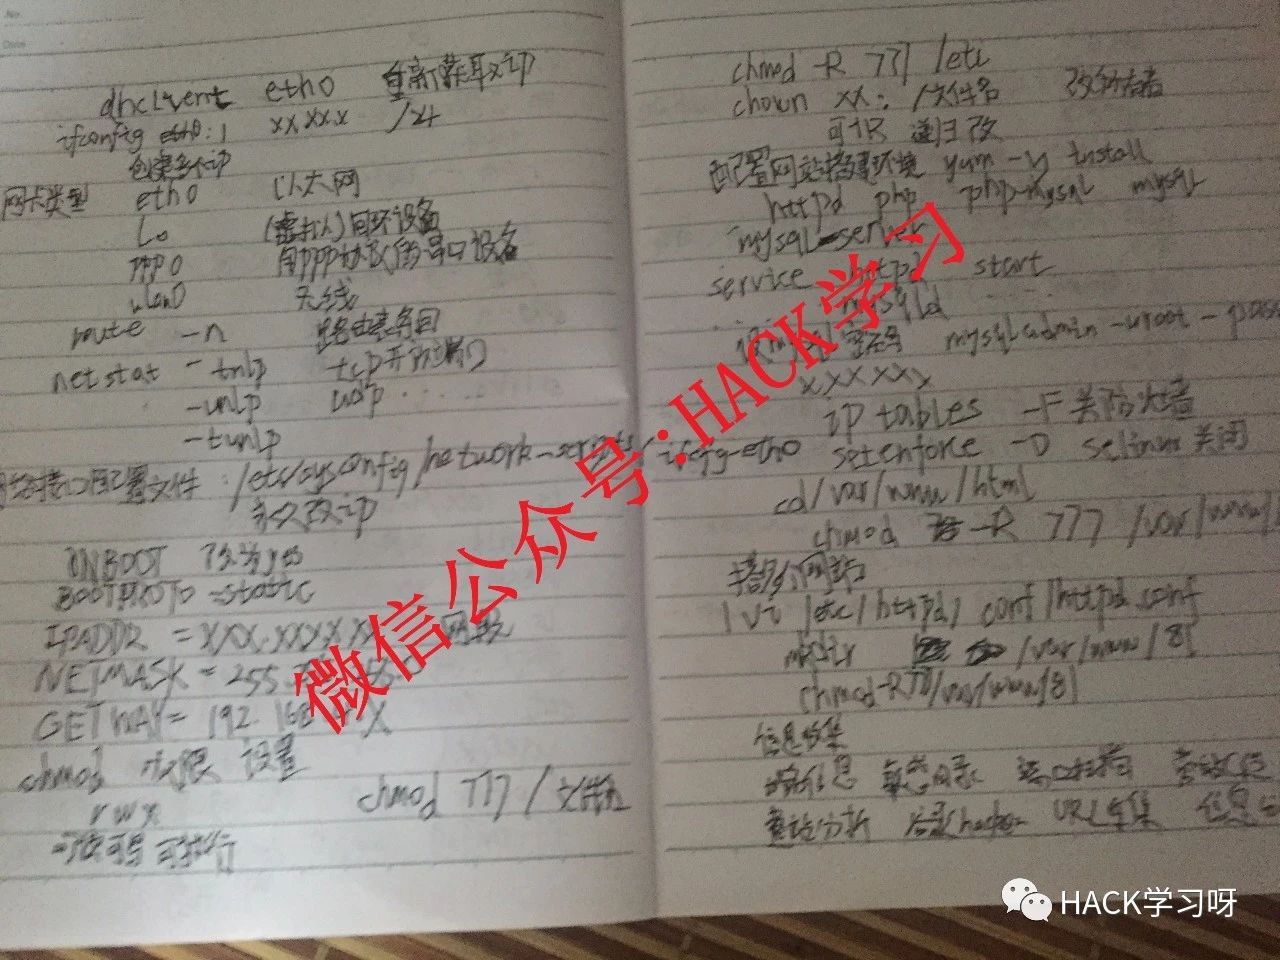 No.
Date
dhclient eth0 重新获取ip
ifconfig eth0:1 xx.xx.x /24
创建多个ip
网卡类型 eth0 以太网
Lo (虚拟)回环设备
ppp0 用ppp协议的串口设备
wlan0 无线
route -n 路由表条目
netstat -tnlp tcp开放端口
-unlp udp ......
-tunlp
接口配置文件:/etc/sysconfig/network-scripts/ifcfg-eth0
永久改ip
ONBOOT 改为yes
BOOTPROTO =static
IPADDR =
NETMASK = 255
GETWAY= 192.168 X
chmod 权限 设置
r w x chmod 777 /文件
可读可写 可执行
chmod -R 771 /etc
chown xx: /文件名 改所有者
可-R 递归改
配置网站搭建环境 yum -y install
httpd php php-mysql mysql
mysql-server
service httpd start
mysqld
密码 mysqladmin -uroot -pass
xxxxxx
iptables -F 关防火墙
setenforce -0 selinux关闭
cd/var/www/html
chmod -R 777 /var/www/
搭多个网站
1 vi /etc/httpd/conf/httpd.conf
mkdir /var/www/81
chmod -R 777/var/www/81
信息收集
URL采集
微信公众号:HACK学习
HACK学习呀